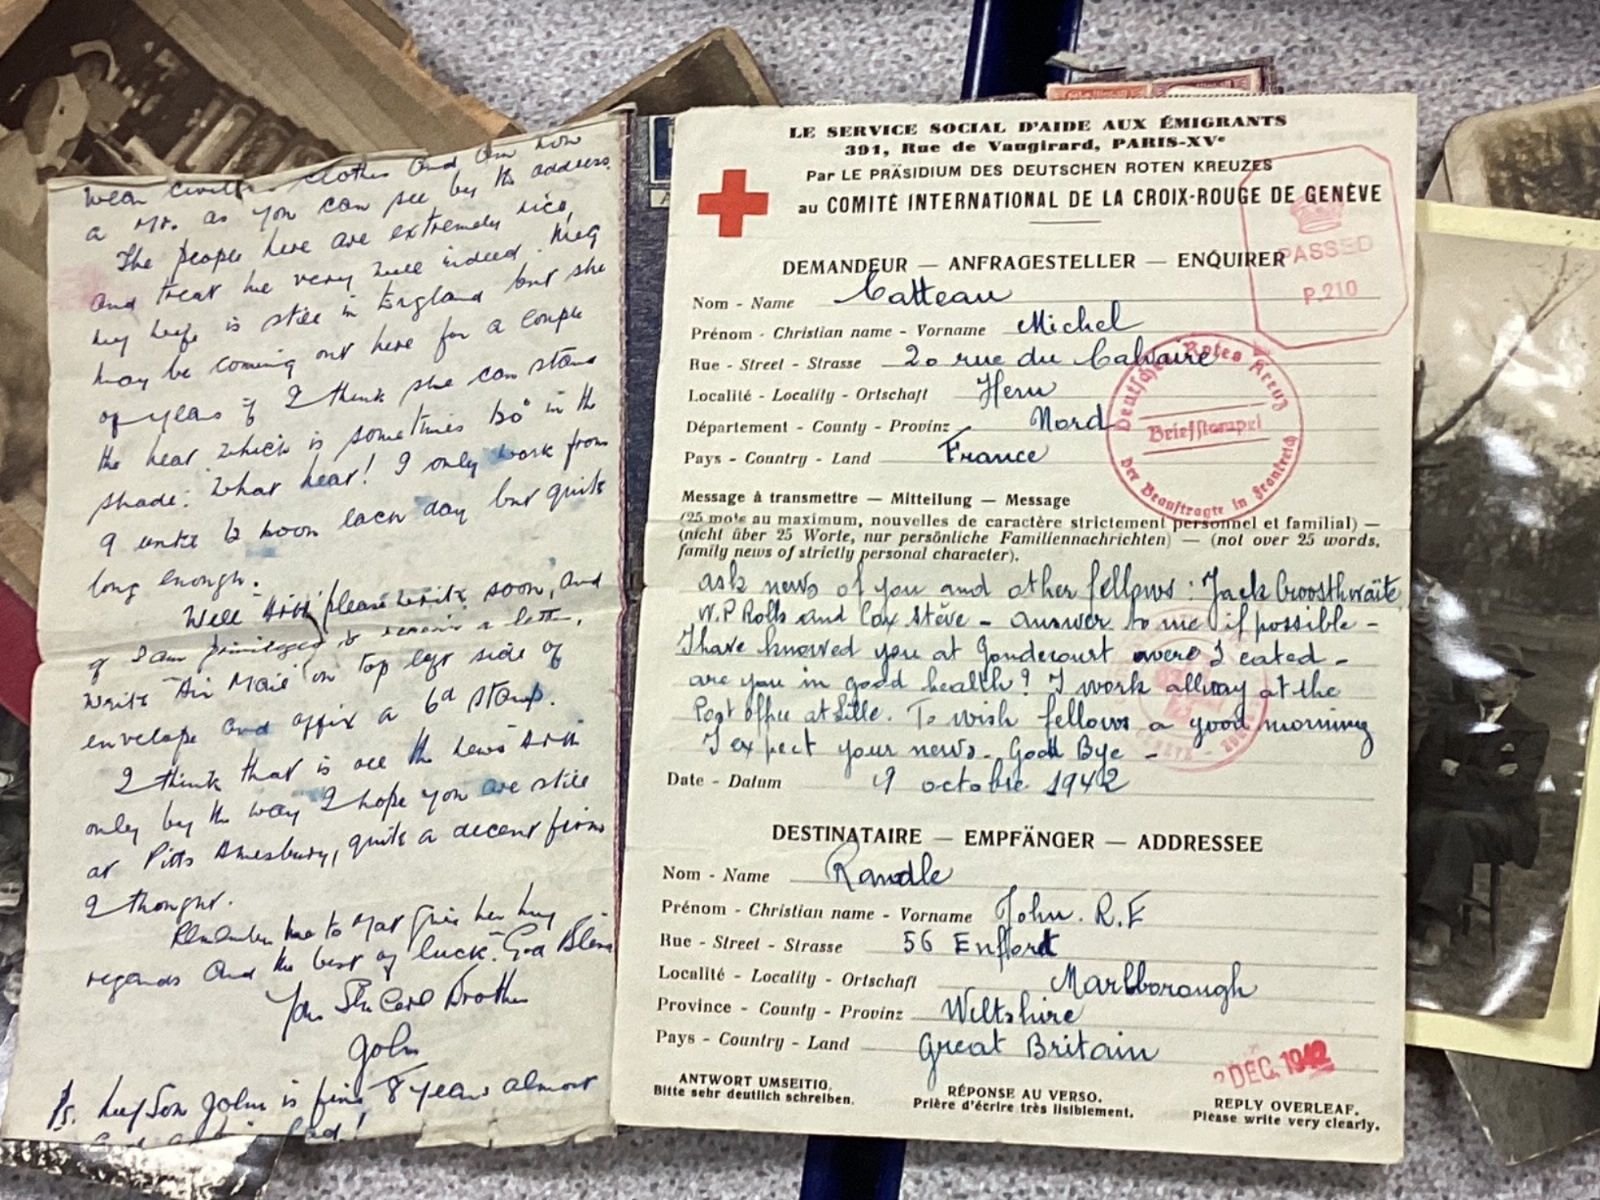 wear civilian clothes and am now
a Mr. as you can see by the address.
The people here are extremely nice,
and treat me very well indeed. Meg
my wife is still in England but she
may be coming out here for a couple
of years if I think she can stand
the heat which is sometimes 130° in the
shade. What heat! I only work from
9 until 12 noon each day but quite
long enough.
Well please write soon, and
if I am privileged to receive a letter,
write "Air Mail" on top left side of
envelope and affix a 6d stamp.
I think that is all the news
only by the way I hope you are still
at Pitts Amesbury, quite a decent firm
I thought.
Remember me to Mar give her my
regards and the best of luck. God Bless
Your Sincere Brother
John
Ps. my Son John is fine 8 years almost
lad!
LE SERVICE SOCIAL D'AIDE AUX ÉMIGRANTS
391, Rue de Vaugirard, PARIS-XVe
Par LE PRÄSIDIUM DES DEUTSCHEN ROTEN KREUZES
au COMITÉ INTERNATIONAL DE LA CROIX-ROUGE DE GENÈVE
PASSED
P.210
DEMANDEUR — ANFRAGESTELLER — ENQUIRER
Nom - Name Catteau
Prénom - Christian name - Vorname Michel
Rue - Street - Strasse 20 rue du Calvaire
Localité - Locality - Ortschaft Hem
Département - County - Provinz Nord
Pays - Country - Land France
Deutsches Rotes Kreuz
Briefstempel
Der Beauftragte in Frankreich
Message à transmettre — Mitteilung — Message
(25 mots au maximum, nouvelles de caractère strictement personnel et familial) —
(nicht über 25 Worte, nur persönliche Familiennachrichten) — (not over 25 words,
family news of strictly personal character).
ask news of you and other fellows : Jack Croosthwaïte
W.P Rolls and Cox Stève - answer to me if possible -
I have knowed you at Gondecourt were I eated -
are you in good health? I work allway at the
Post office at Lille. To wish fellows a good morning
I expect your news - Good Bye -
Date - Datum 9 octobre 1942
DESTINATAIRE — EMPFÄNGER — ADDRESSEE
Nom - Name Randle
Prénom - Christian name - Vorname John. R.E
Rue - Street - Strasse 56 Enford
Localité - Locality - Ortschaft Marlborough
Province - County - Provinz Wiltshire
Pays - Country - Land Great Britain
DEC. 1942
ANTWORT UMSEITIG.
Bitte sehr deutlich schreiben.
RÉPONSE AU VERSO.
Prière d'écrire très lisiblement.
REPLY OVERLEAF.
Please write very clearly.